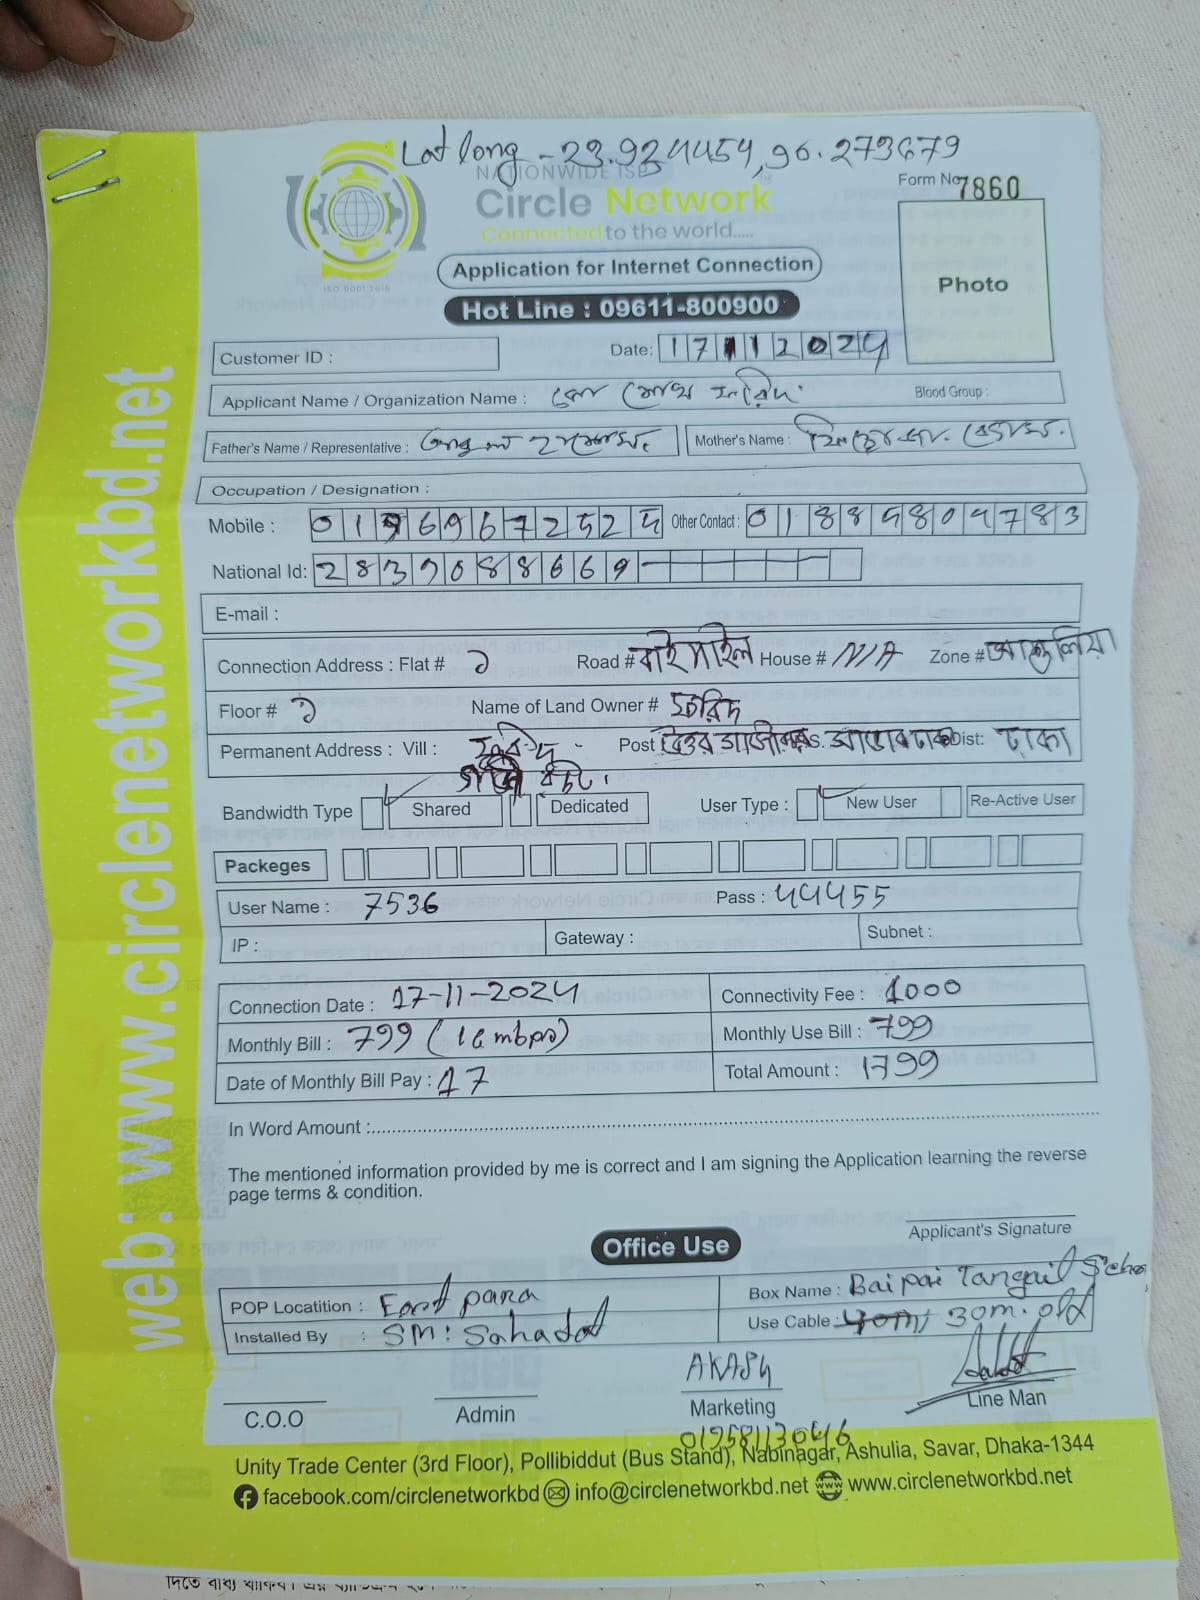 Lat long - 23.924454, 90.273679
NATIONWIDE ISP
Form No 7860
Circle Network
Connected to the world.....
ISO 9001:2015
Application for Internet Connection
Photo
Hot Line : 09611-800900
Customer ID :
Date: 17112024
Applicant Name / Organization Name : মোঃ ফরিদ
Blood Group :
Father's Name / Representative :
Mother's Name : বেগম
Occupation / Designation :
Mobile : 01969672524 Other Contact : 01885809783
National Id: 2839088669
E-mail :
Connection Address : Flat # ১ Road # বাইপাইল House # N/A Zone # আশুলিয়া
Floor # ১ Name of Land Owner # ফরিদ
Permanent Address : Vill : Post P.S. Dist: ঢাকা
Bandwidth Type Shared Dedicated User Type : New User Re-Active User
Packeges
User Name : 7536 Pass : 44455
IP : Gateway : Subnet :
Connection Date : 17-11-2024 Connectivity Fee : 1000
Monthly Bill : 799 (16 mbps) Monthly Use Bill : 799
Date of Monthly Bill Pay : 17 Total Amount : 1799
In Word Amount :
The mentioned information provided by me is correct and I am signing the Application learning the reverse
page terms & condition.
Applicant's Signature
Office Use
POP Locatition : East para Box Name : Baipai Tangail
Installed By : SM: Sahadat Use Cable : 30m. old
AKASH
C.O.O Admin Marketing Line Man
01958113046
Unity Trade Center (3rd Floor), Pollibiddut (Bus Stand), Nabinagar, Ashulia, Savar, Dhaka-1344
facebook.com/circlenetworkbd info@circlenetworkbd.net www.circlenetworkbd.net
web: www.circlenetworkbd.net